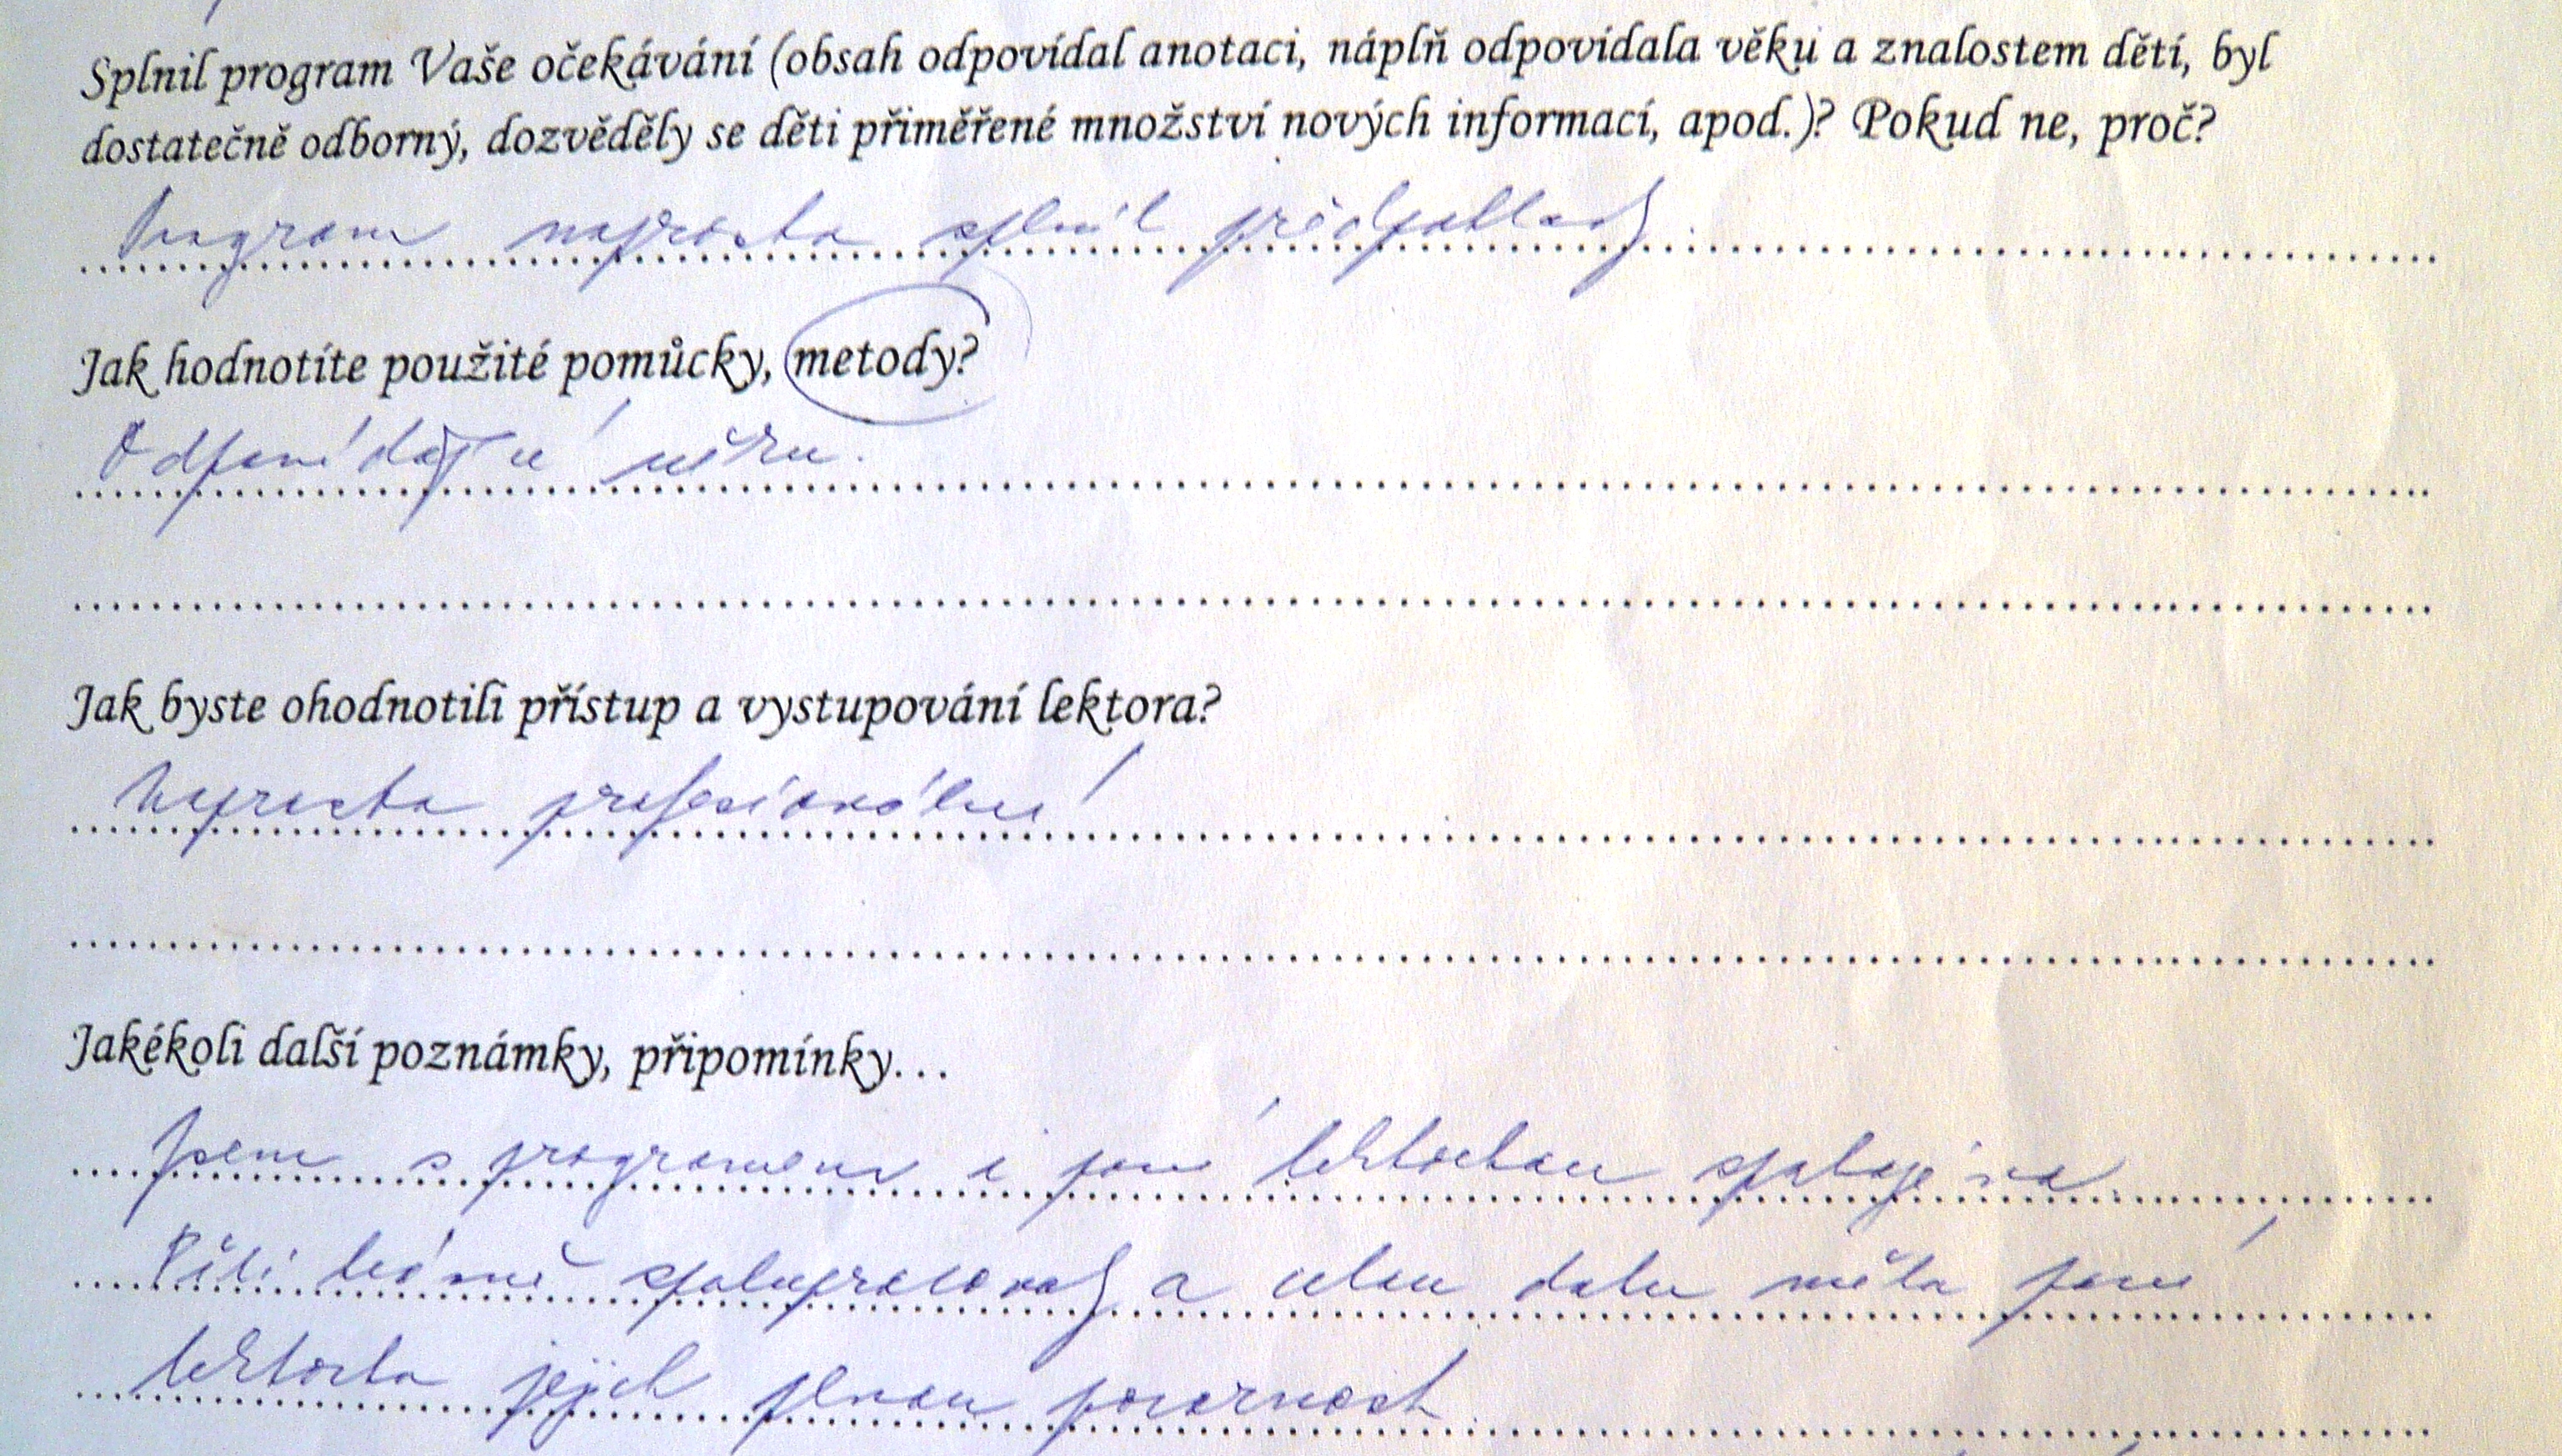 Splnil program Vaše očekávání (obsah odpovídal anotaci, náplň odpovídala věku a znalostem dětí, byl
dostatečně odborný, dozvěděly se děti přiměřené množství nových informací, apod.)? Pokud ne, proč?
Program naprosto splnil předpoklady.
Jak hodnotíte použité pomůcky, metody?
Odpovídající věku.
Jak byste ohodnotili přístup a vystupování lektora?
Naprosto profesionální
Jakékoli další poznámky, připomínky...
Jsem s programem i paní lektorkou spokojena.
Děti báječně spolupracovaly a celou dobu měla paní
lektorka jejich plnou pozornost.